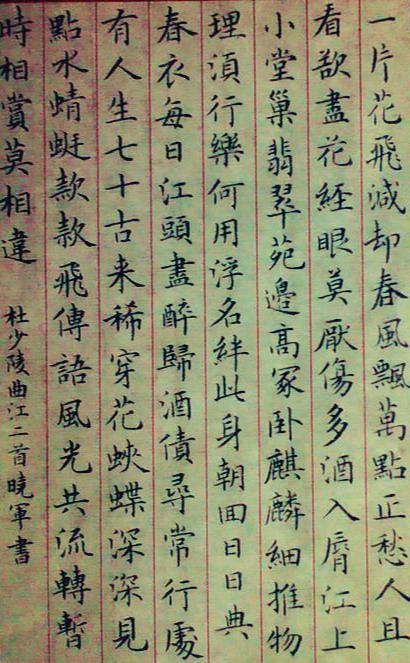 一片花飛減却春風飄萬點正愁人且
看欲盡花經眼莫厭傷多酒入脣江上
小堂巢翡翠苑邊高冢卧麒麟細推物
理須行樂何用浮名絆此身朝囬日日典
春衣每日江頭盡醉歸酒債尋常行處
有人生七十古来稀穿花蛺蝶深深見
點水蜻蜓款款飛傳語風光共流轉暫
時相賞莫相違 杜少陵曲江二首曉軍書